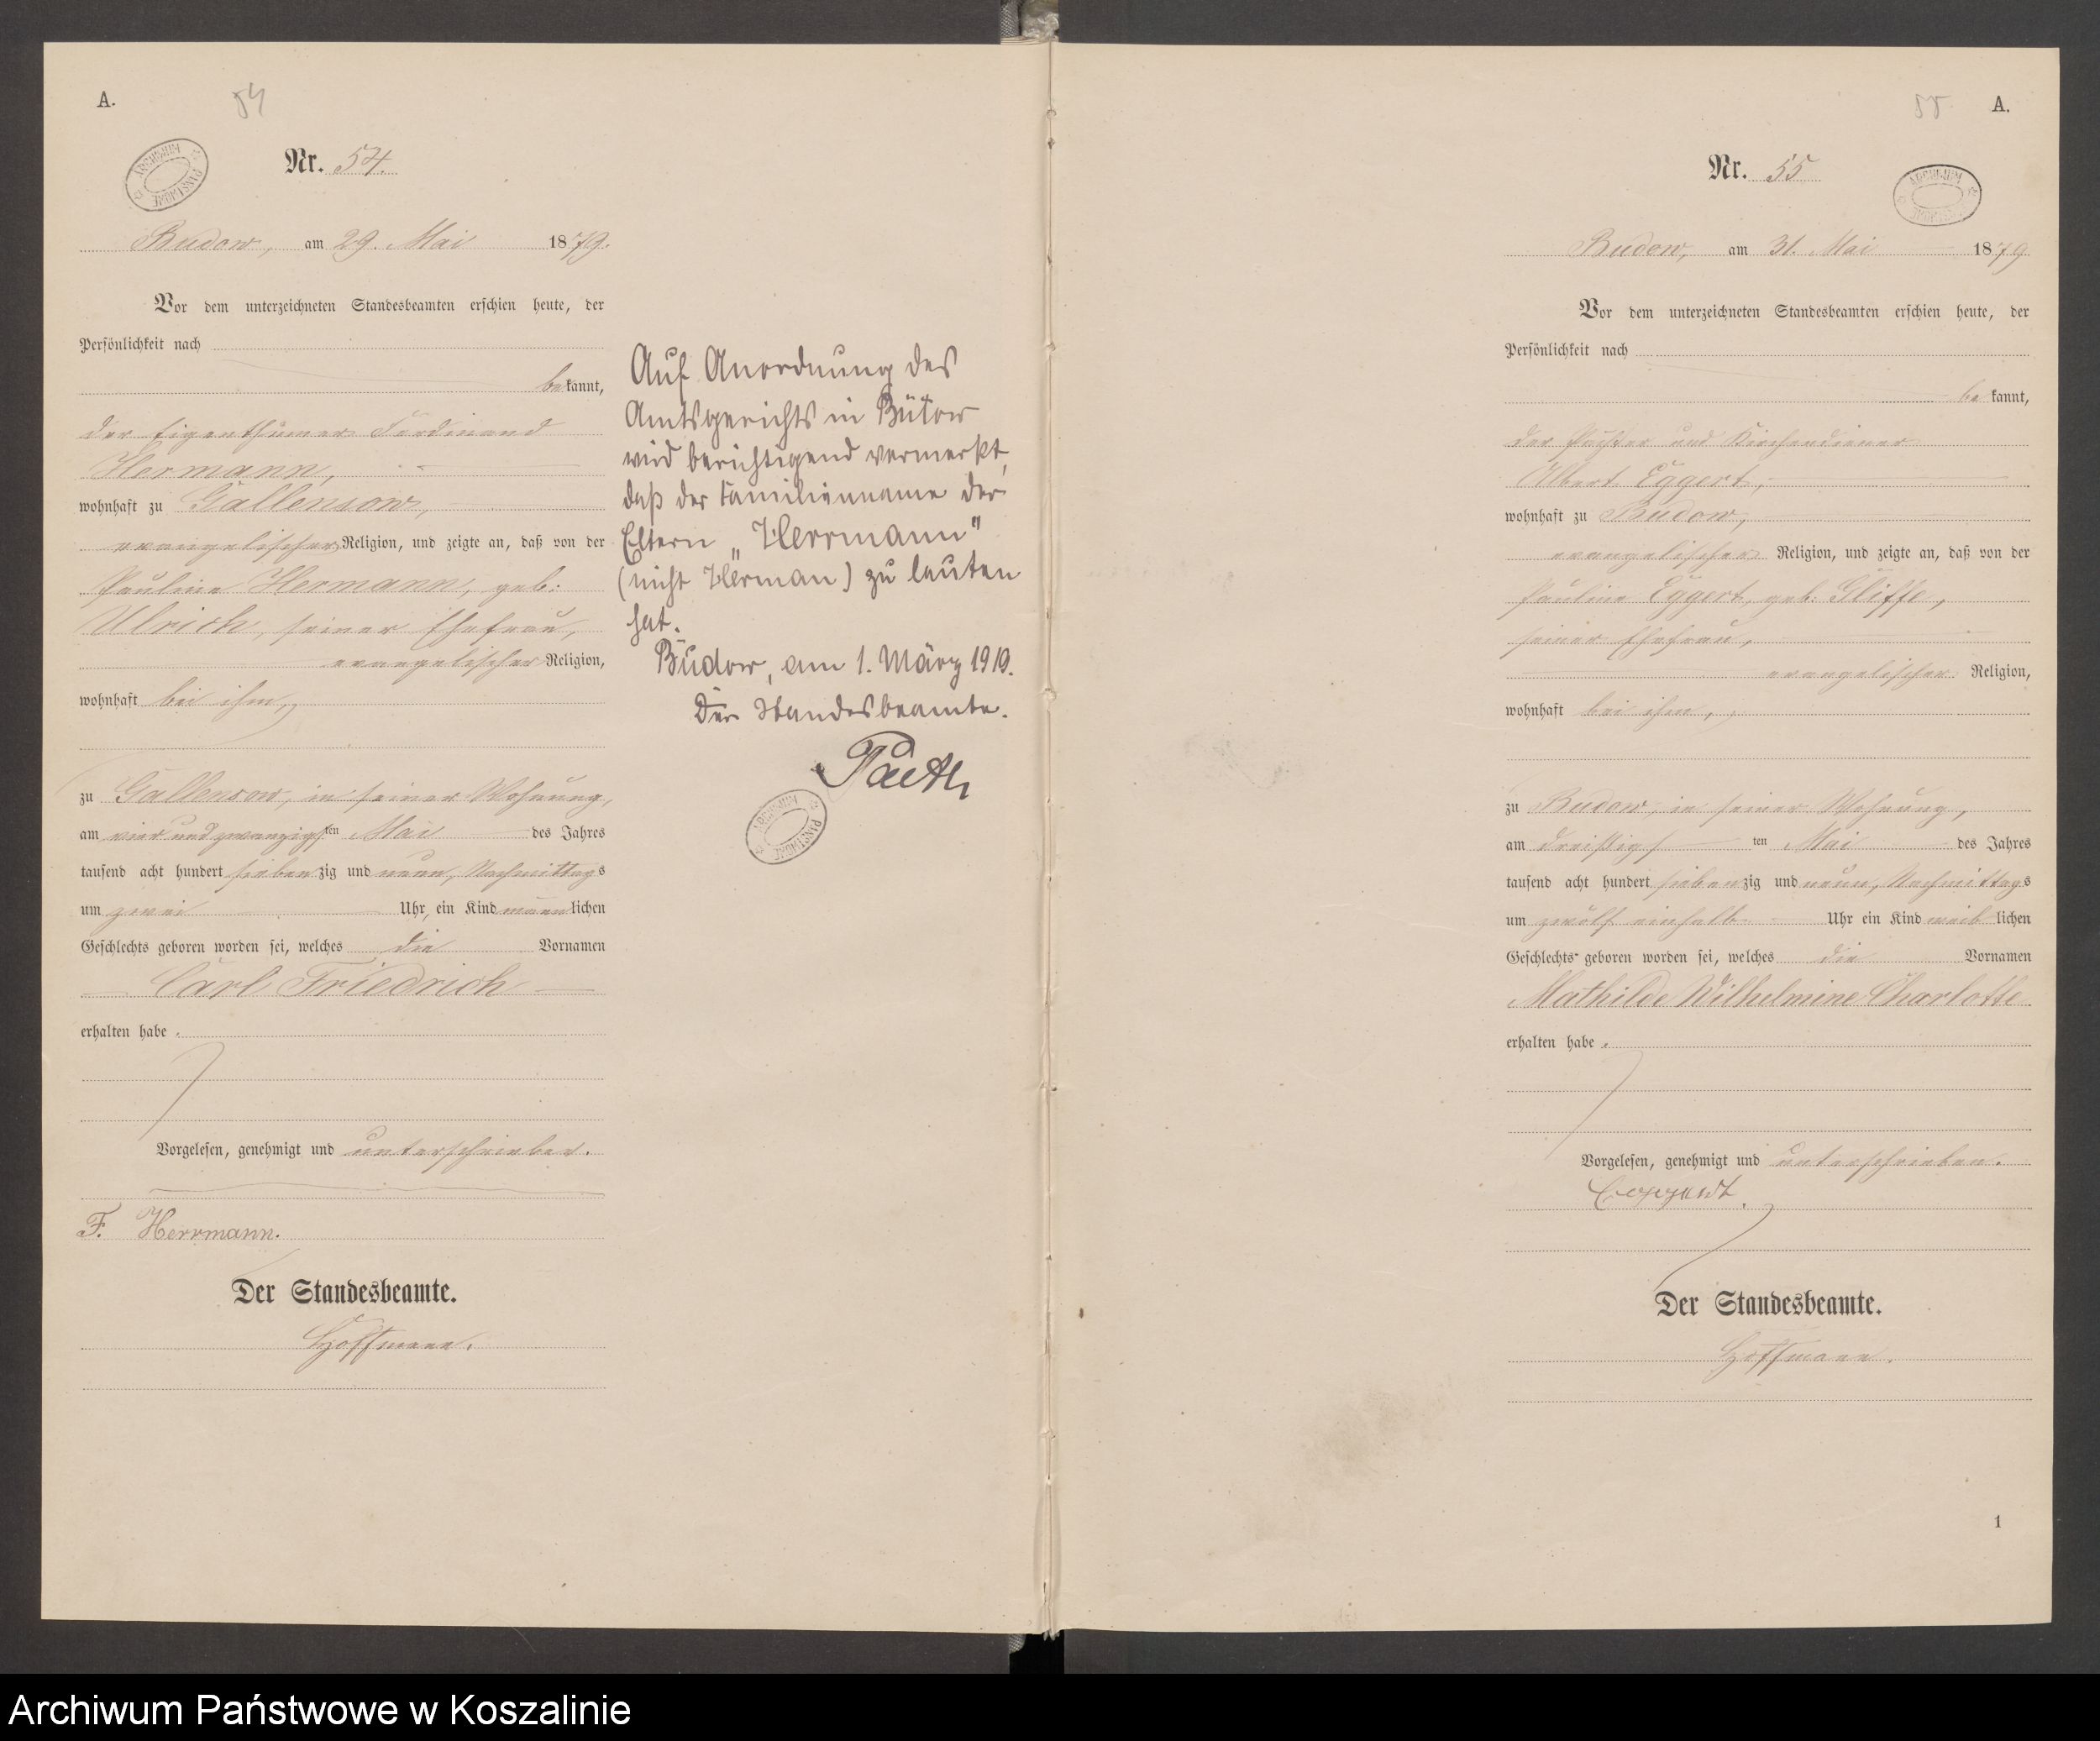 A.
54
ARCHIWUM PAŃSTWOWE
Nr. 54.
Budow, am 29. Mai 1879.
Vor dem unterzeichneten Standesbeamten erschien heute, der
Persönlichkeit nach
bekannt,
der Eigenthümer Ferdinand
Hermann,
wohnhaft zu Gallensow,
evangelischer Religion, und zeigte an, daß von der
Pauline Hermann, geb.
Ulrich, seiner Ehefrau,
evangelischer Religion,
wohnhaft bei ihm,
zu Gallensow, in seiner Wohnung,
am vier und zwanzigsten Mai des Jahres
tausend acht hundert siebenzig und neun, Nachmittags
um zwei Uhr, ein Kind männlichen
Geschlechts geboren worden sei, welches die Vornamen
Carl Friedrich
erhalten habe.
Vorgelesen, genehmigt und unterschrieben.
F. Herrmann.
Der Standesbeamte.
Hoffmann.
Auf Anordnung des
Amtsgerichts in Bütow
wird berichtigend vermerkt,
daß der Familienname der
Eltern „Herrmann"
(nicht Herman) zu lauten
hat.
Budow, am 1. März 1919.
Der Standesbeamte.
Paeth
ARCHIWUM PAŃSTWOWE
55
A.
Nr. 55
ARCHIWUM PAŃSTWOWE
Budow, am 31. Mai 1879
Vor dem unterzeichneten Standesbeamten erschien heute, der
Persönlichkeit nach
bekannt,
der und Kirchendiener
Albert Eggert,
wohnhaft zu Budow,
evangelischer Religion, und zeigte an, daß von der
Pauline Eggert, geb. Gliffe,
seiner Ehefrau,
evangelischer Religion,
wohnhaft bei ihm,
zu Budow, in seiner Wohnung,
am dreißigsten Mai des Jahres
tausend acht hundert siebenzig und neun, Nachmittags
um zwölf einhalb Uhr ein Kind weiblichen
Geschlechts geboren worden sei, welches die Vornamen
Mathilde Wilhelmine Charlotte
erhalten habe.
Vorgelesen, genehmigt und unterschrieben.
Eggert.
Der Standesbeamte.
Hoffmann.
1
Archiwum Państwowe w Koszalinie